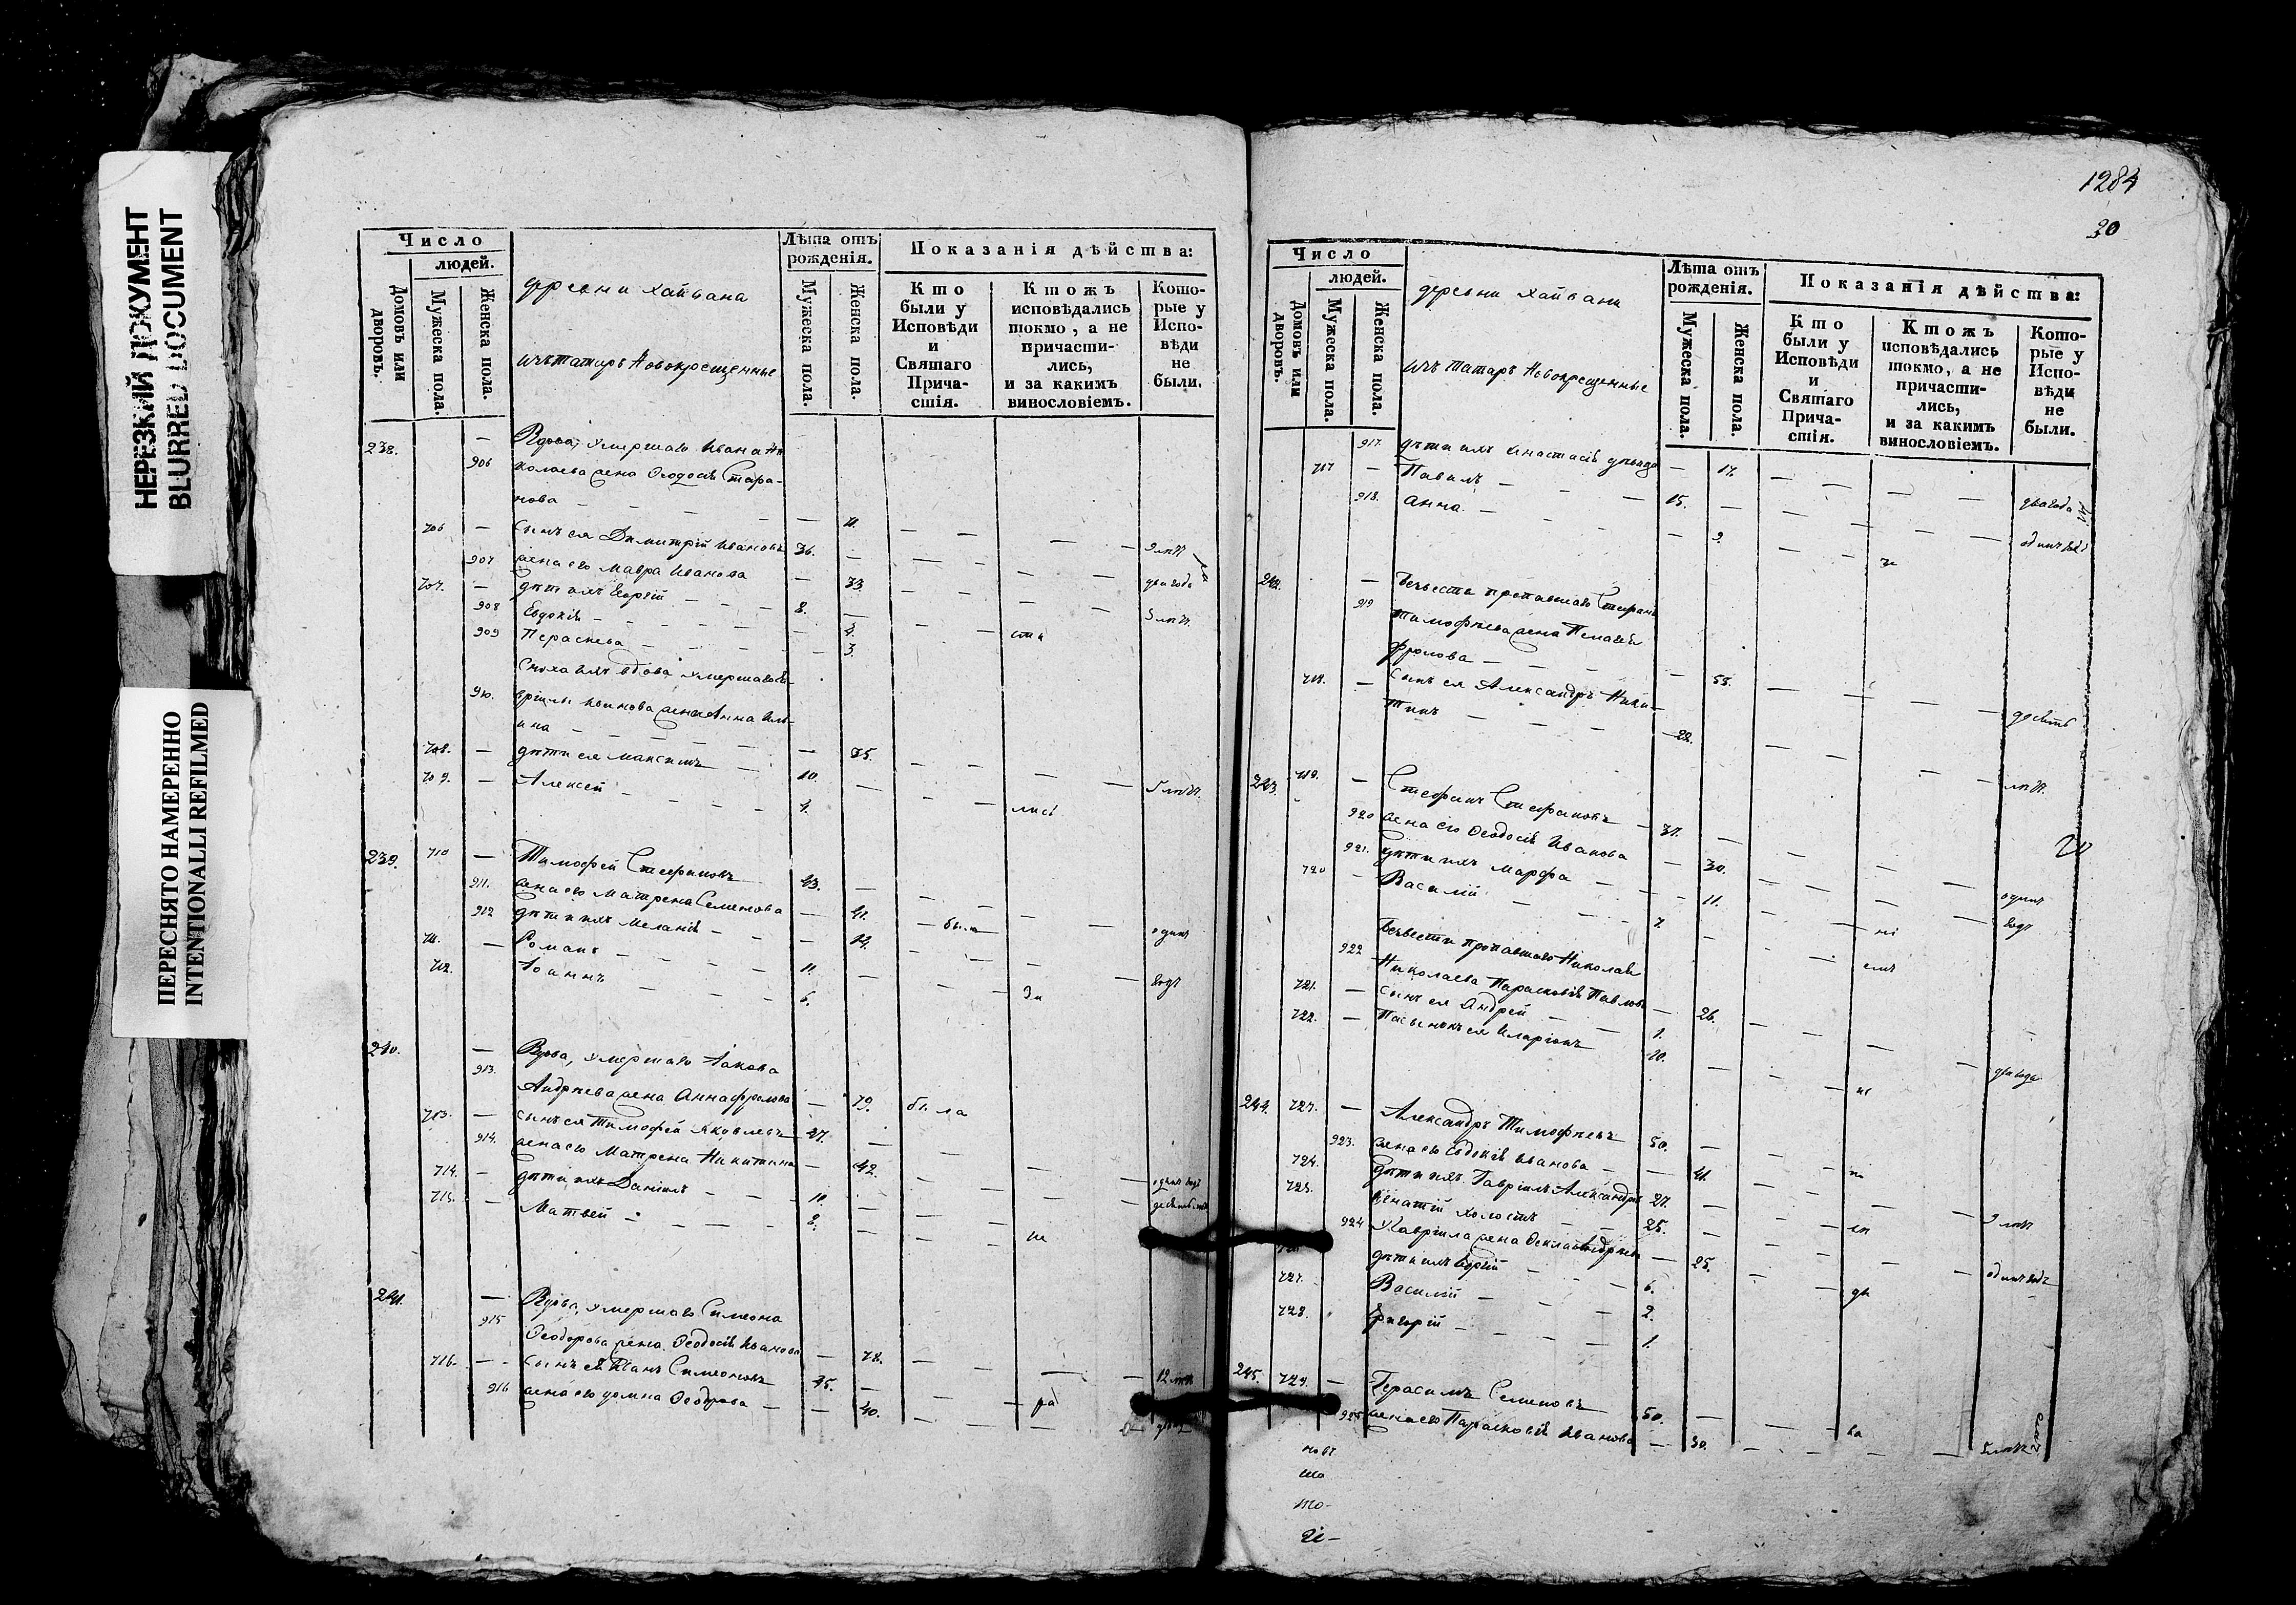 НЕРЕЗКИЙ ДОКУМЕНТ
BLURRED DOCUMENT
ПЕРЕСНЯТО НАМЕРЕННО
INTENTIONALLI REFILMED
Число
людей.
Домовъ или дворовъ.
Мужеска пола.
Женска пола.
деревни Хайвана
изъ татаръ Новокрещенные
Лѣта отъ рожденія.
Мужеска пола.
Женска пола.
Показанія дѣйства:
Кто были у Исповѣди и Святаго Причастія.
Ктожъ исповѣдались токмо, а не причастились, и за какимъ винословіемъ.
Которые у Исповѣди не были.
238. — Вдова, умершаго Ивана Ни
906 колаева жена Ѳеодосія
нова
706 — сынъ ея Димитрій Ивановъ 36. 9 лѣтъ
907 жена его Мавра Иванова — 33. два года
707. — дѣти ихъ Георгій 8.
908 Евдокія 5 лѣтъ
909 Пераскева 3.
Сноха ихъ вдова умершаго
910. Иванова жена Анна Иль-
ина 35.
708. — дѣти ея Максимъ 10. 5 лѣтъ
709. — Алексей 4. лись
239. 710 — Тимофей Стефановъ 43.
911. жена его Матрена Семенова — 41. один
912 дѣти ихъ Меланія — 14. были
711. — Романъ 11. годъ
712. Іоаннъ 6. За
240. — Вдова, умершаго Іакова
913. Андреева жена Анна Фролова — 79. была
713. — сынъ ея Тимофей Яковлевъ 27.
914. жена его Матрена Никитина — 42.
714. — дѣти ихъ Даніилъ 10. одинъ годъ
715. — Матвей 8. не
241. — Вдова, умершаго Симеона
915 Ѳеодорова жена Ѳеодосія Иванова — 78.
716. — сынъ ея Иванъ Симеоновъ 45. 12 лѣтъ
916 жена его Домна Ѳеодорова — 40. ра
1284
30
Число
людей.
Домовъ или дворовъ.
Мужеска пола.
Женска пола.
деревни Хайвани
изъ татаръ Новокрещенные
Лѣта отъ рожденія.
Мужеска пола.
Женска пола.
Показанія дѣйства:
Кто были у Исповѣди и Святаго Причастія.
Ктожъ исповѣдались токмо, а не причастились, и за какимъ винословіемъ.
Которые у Исповѣди не были.
917. дѣти ихъ Анастасія девица — 17.
717 — Павелъ 15. два года
918. Анна — 9. одинъ годъ
242. — Безвести пропавшаго Стефана
919 Тимофеева жена Пелагея
Фролова — 55. девять
718. — сынъ ея Александръ Ники-
тинъ 22. лѣтъ
243. 719. — Стефанъ Стефановъ 37.
920 жена его Ѳеодосія Иванова — 30.
921. дѣти ихъ Марфа — 11. одинъ
720 — Василій 7. годъ
Безвести пропавшаго Николая
922 Николаева Парасковія Павлова — 26.
721. — сынъ ея Андрей 1.
722. — Пасынокъ ея Иларіонъ 10. два года
244. 723. — Александръ Тимофеевъ 50.
923. жена его Евдокія Иванова — 41.
724. дѣти ихъ Гавріилъ Александровъ 27. 9 лѣтъ
725. Игнатій холостъ 25.
924 У Гавріила жена — 25. одинъ годъ
дѣти ихъ 6.
727. Василій 2.
728. Григорій 1.
245. 729. — Герасимъ Семеновъ 50. ва
925 жена его Парасковія Иванова — 30.